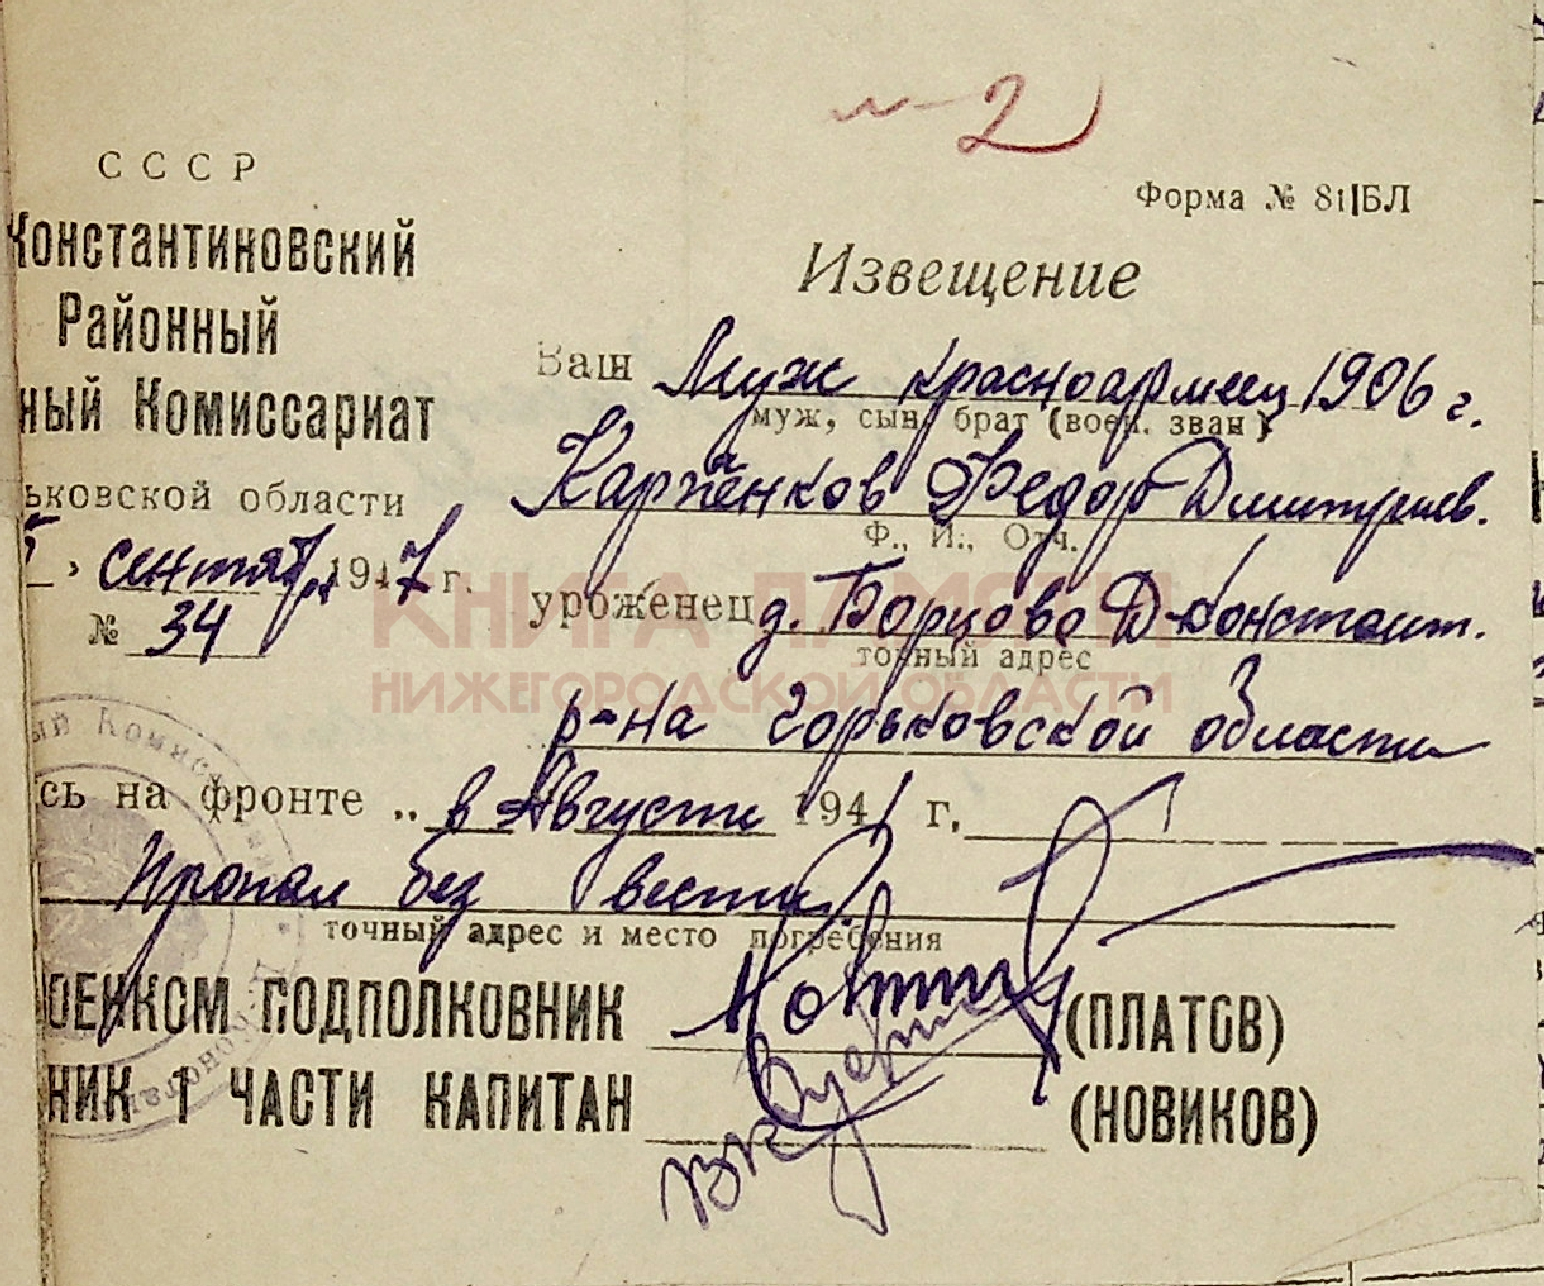 м-2
СССР
Форма № 81|БЛ
Константиновский
Районный
ный Комиссариат
ьковской области
5 " сентяб. 1947 г.
№ 34
Извещение
Ваш Муж красноармеец 1906 г.
муж, сын, брат (воен. зван)
Карпенков Федор Дмитриев.
Ф., И., Отч.
уроженец д. Борцово Д-Констант.
точный адрес
р-на Горьковской области
КНИГА ПАМЯТИ
НИЖЕГОРОДСКОЙ ОБЛАСТИ
сь на фронте .. в Августе 1941 г.
Пропал без вести.
точный адрес и место погребения
ОЕНКОМ ПОДПОЛКОВНИК (ПЛАТОВ)
НИК 1 ЧАСТИ КАПИТАН (НОВИКОВ)
ый Комис